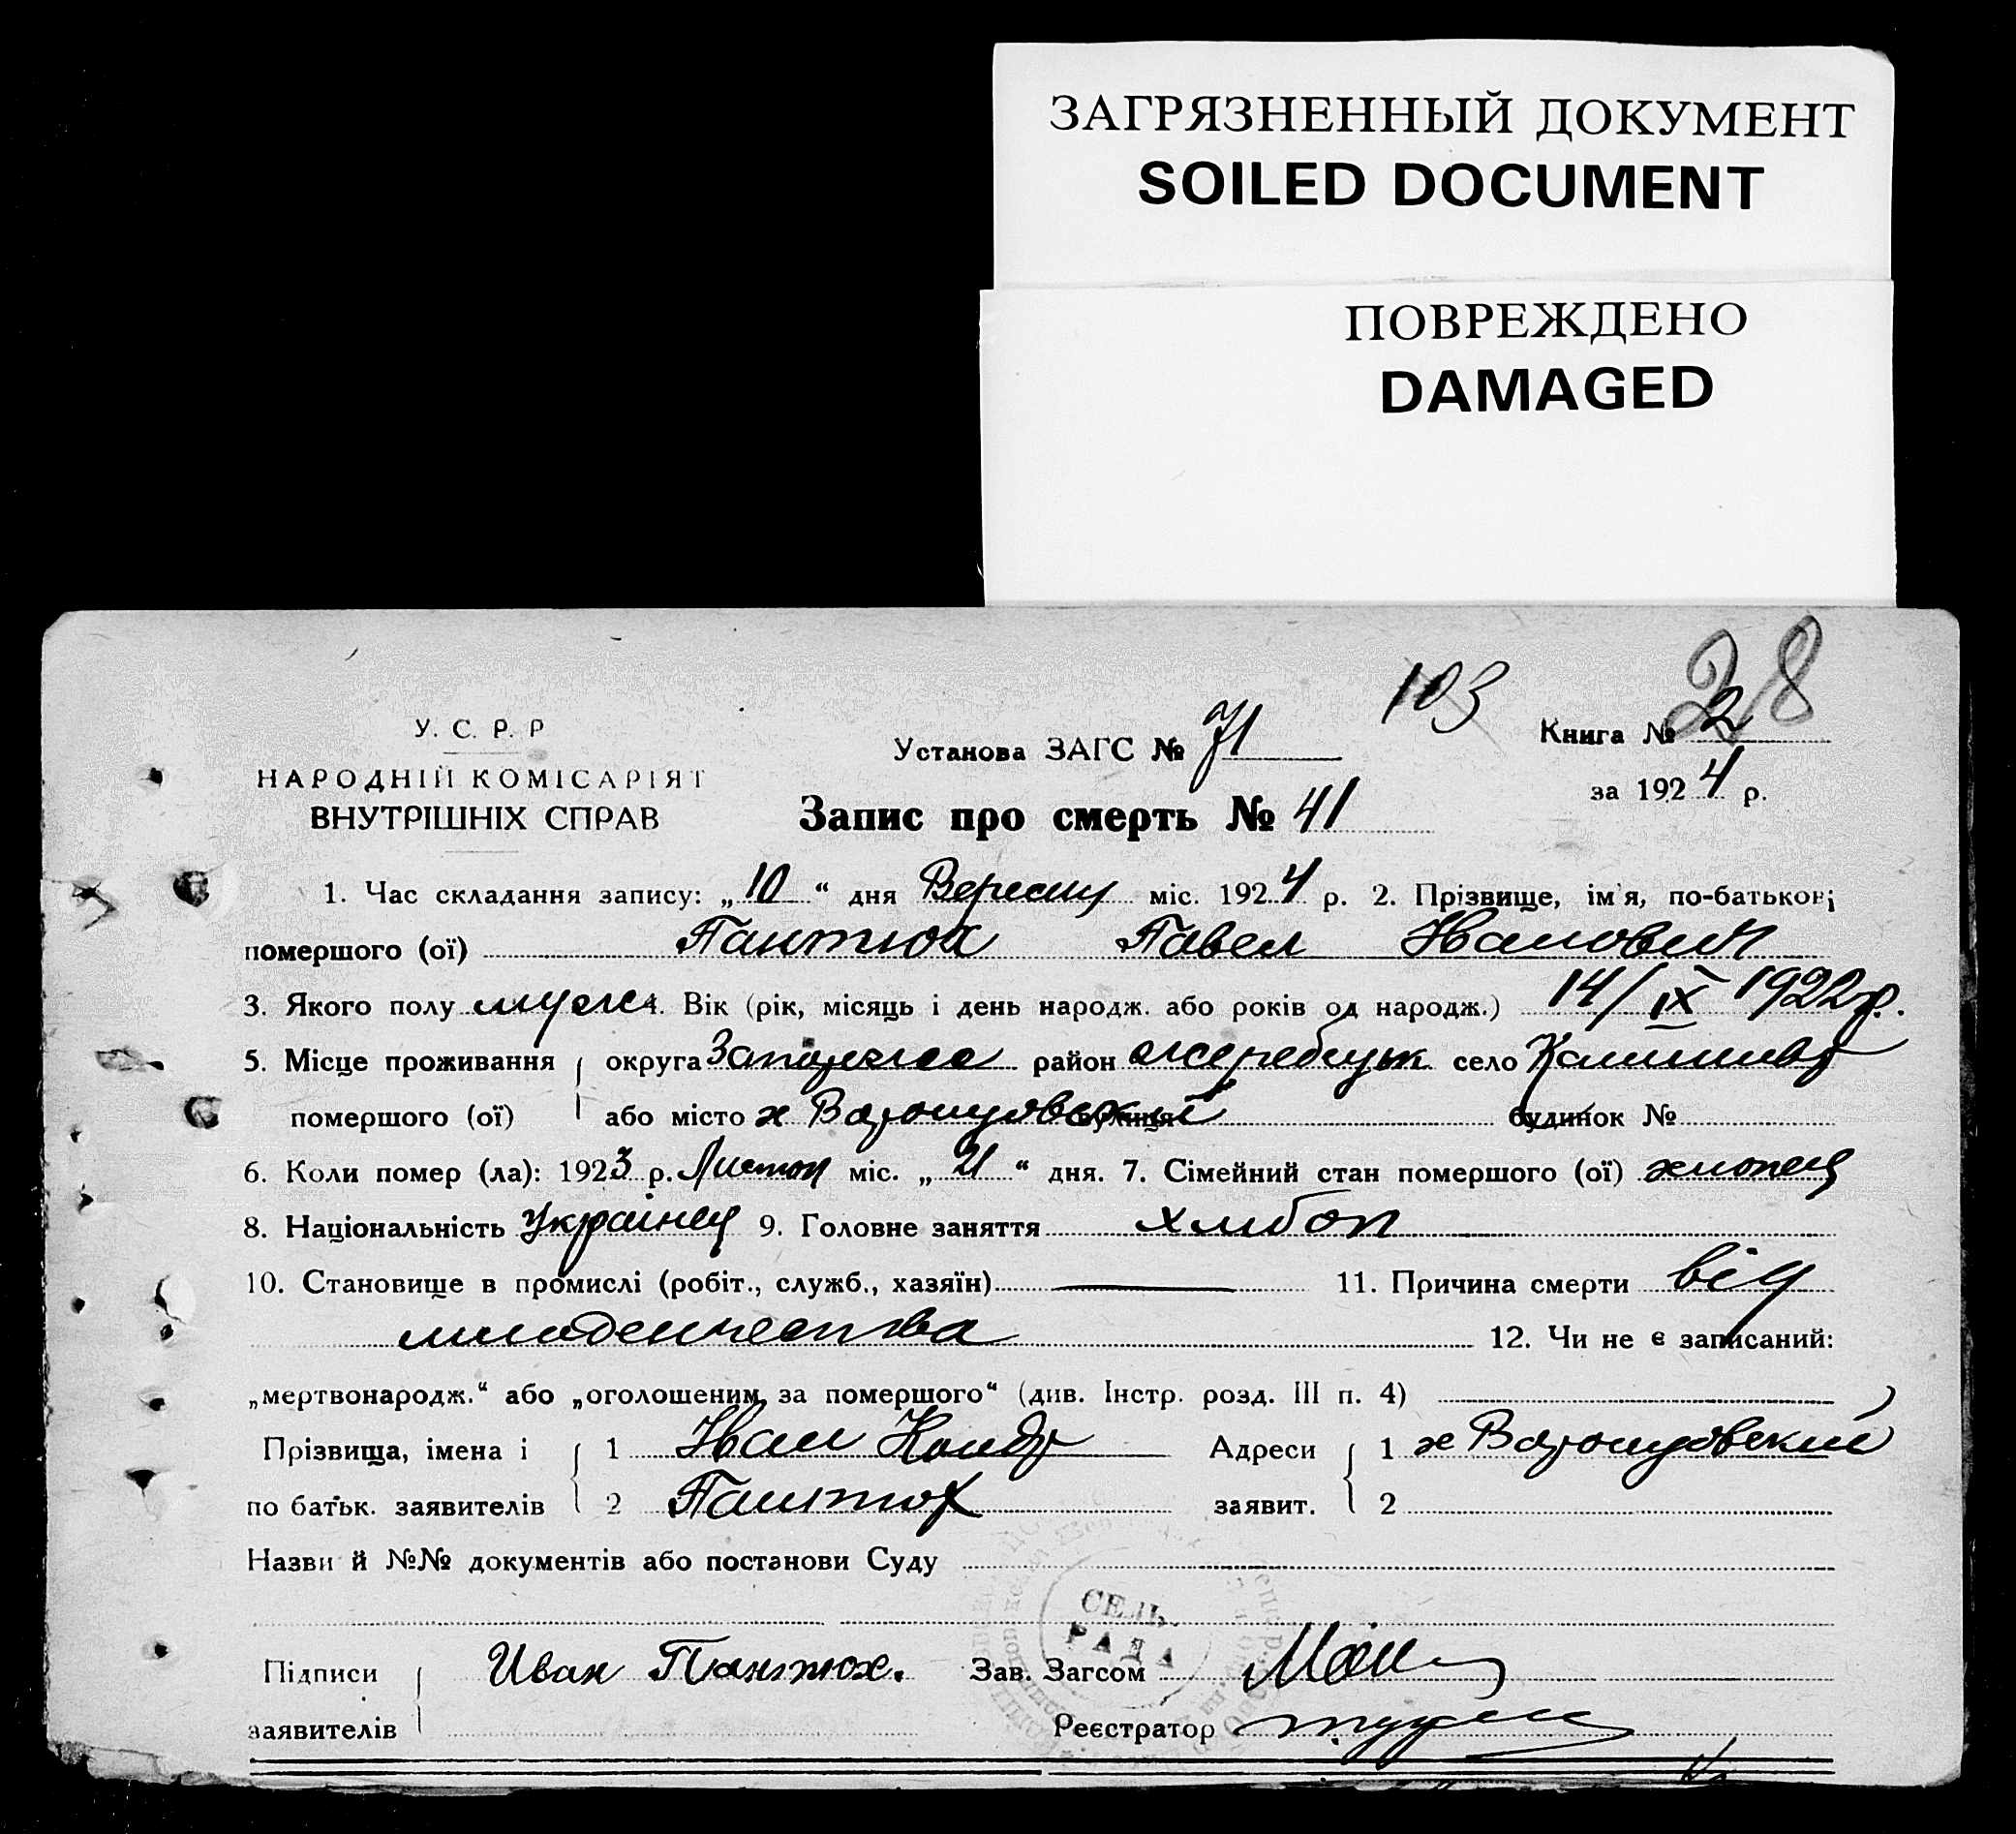 ЗАГРЯЗНЕННЫЙ ДОКУМЕНТ
SOILED DOCUMENT
ПОВРЕЖДЕНО
DAMAGED
28
103
У. С. Р. Р
Установа ЗАГС № 71
Книга № 2
НАРОДНІЙ КОМІСАРІЯТ
за 1924 р.
ВНУТРІШНІХ СПРАВ
Запис про смерть № 41
1. Час складання запису: „10“ дня Вересня міс. 1924 р. 2. Прізвище, ім'я, по-батькові
помершого (ої) Пантюх Павел Иванович
3. Якого полу муж 4. Вік (рік, місяць і день народж. або років од народж.) 14/IX 1922 р.
5. Місце проживання округа Запорижс район Жеребецьк село
помершого (ої) або місто х вулиця будинок №
6. Коли помер (ла): 1923 р. Листоп міс. „21“ дня. 7. Сімейний стан помершого (ої) хлопець
8. Національність Українец 9. Головне заняття хлибор
10. Становище в промислі (робіт., служб., хазяїн) — 11. Причина смерти від
младенчества 12. Чи не є записаний:
„мертвонародж.“ або „оголошеним за помершого“ (див. Інстр. розд. III п. 4)
Прізвища, імена і 1 Иван Кондр Адреси 1 х
по батьк. заявителів 2 Пантюх заявит. 2
Назви й №№ документів або постанови Суду
СЕЛЬ.
РАДА
Підписи Иван Пантюх. Зав. Загсом
заявителів Реєстратор